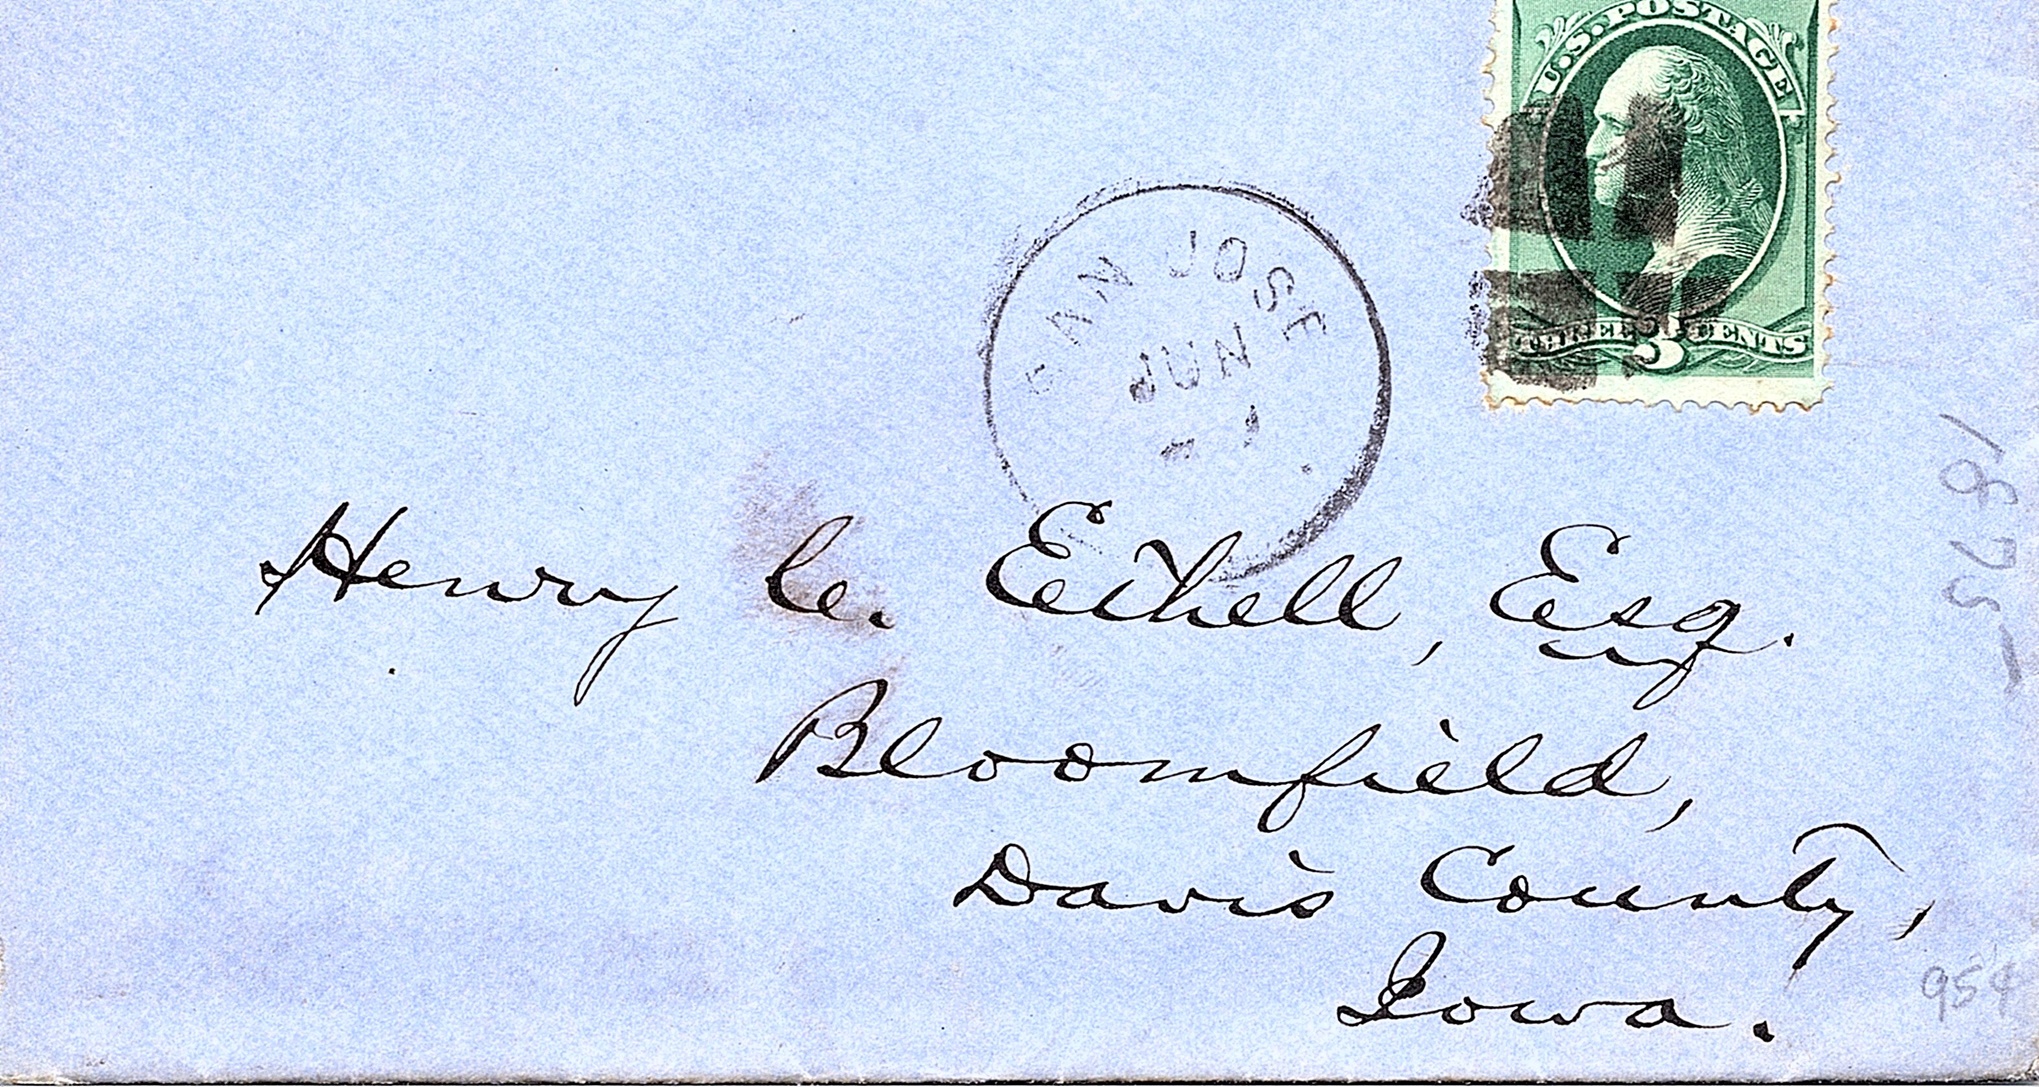 U.S. POSTAGE
THREE 3 CENTS
SAN JOSE
JUN
1875
Henry C. Ethell, Esq.
Bloomfield,
Davis County,
Iowa.
954